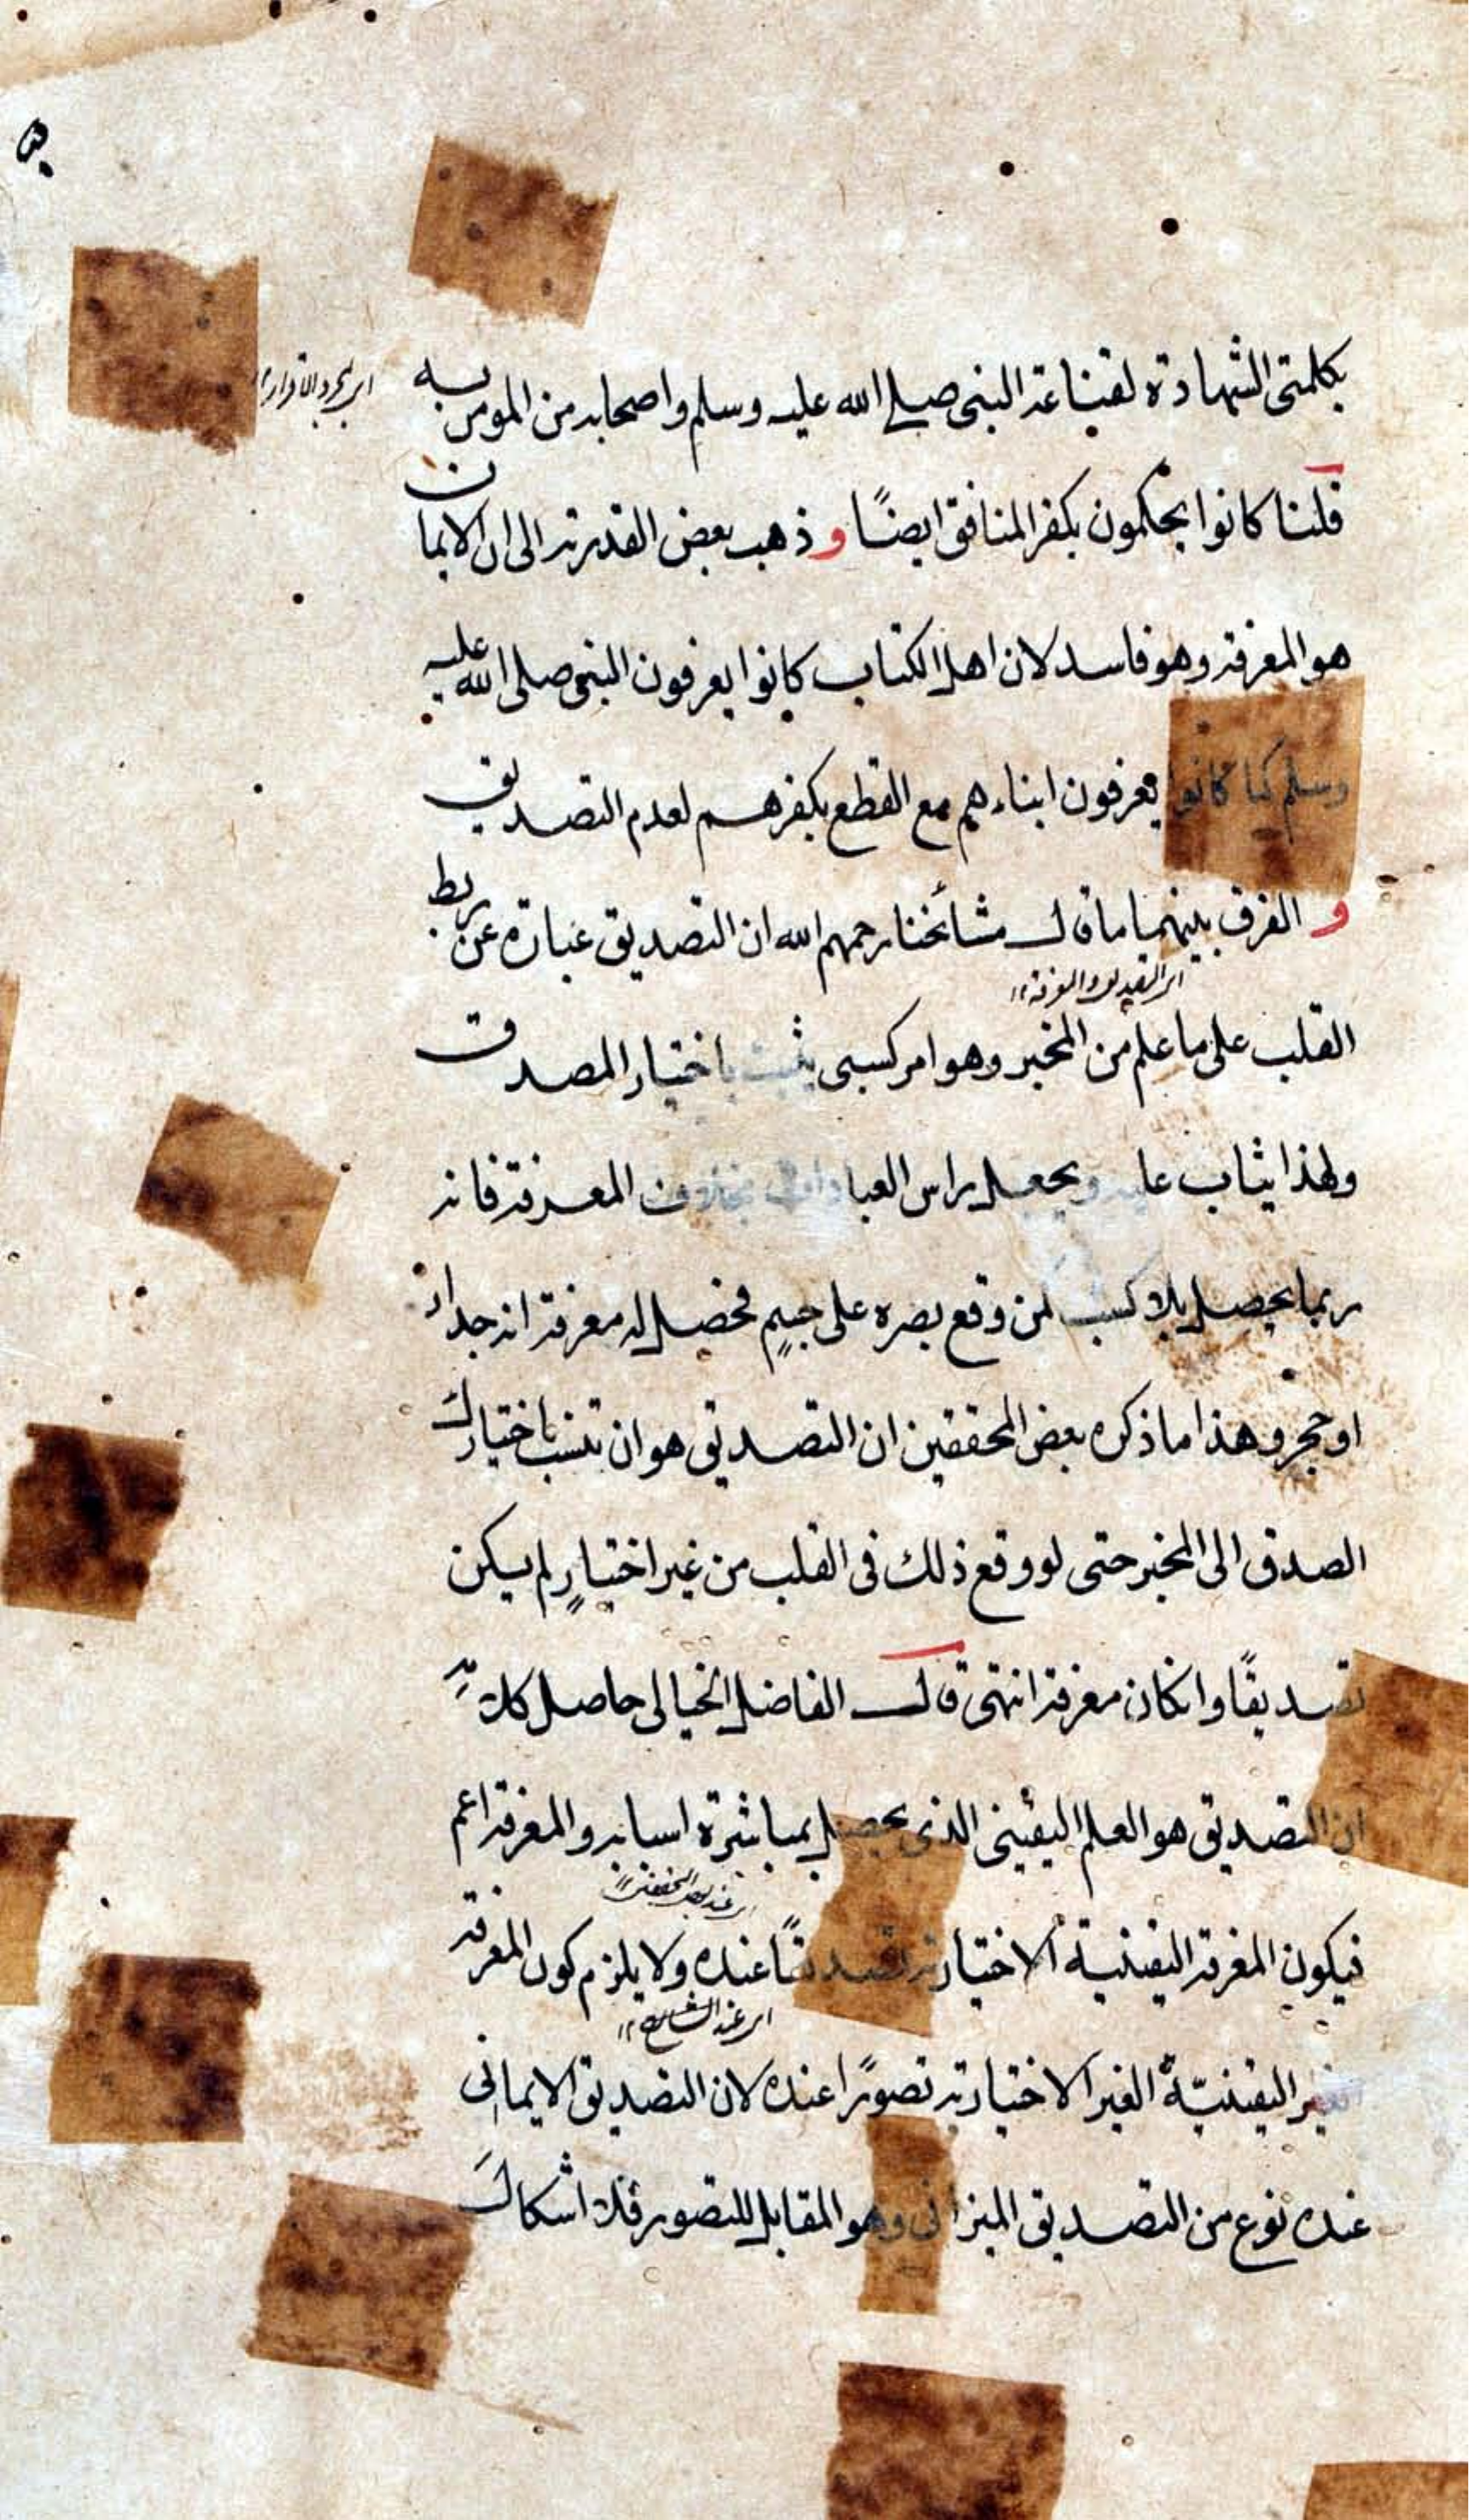 بكلمتى الشهادة لقناعة النبى صلى الله عليه وسلم واصحابه من المومن به
اى بمجرد الاقرار ١٢
قلنا كانوا يحكمون بكفر المنافق ايضًا و ذهب بعض القدرية الى ان الايمان
هو المعرفة وهو فاسد لان اهل الكتاب كانوا يعرفون النبى صلى الله عليه
وسلم كما كانوا يعرفون ابناءهم مع القطع بكفرهم لعدم التصديق
و الفرق بينهما ما قال مشائخنا رحمهم الله ان التصديق عبارة عن ربط
اى التصديق والمعرفة ١٢
القلب على ما علم من المخبر وهو امر كسبى يثبت باختيار المصدق
ولهذا يثاب عليه ويجعل راس العبادات بخلاف المعرفة فانه
ربما يحصل بلا كسب لمن وقع بصره على جسمٍ فحصل له معرفة انه جدار
او حجر وهذا ما ذكره بعض المحققين ان التصديق هو ان تنسب باختيارك
الصدق الى المخبر حتى لو وقع ذلك فى القلب من غير اختيارٍ لم يكن
تصديقًا وانكان معرفة انتهى قال الفاضل الخيالى حاصل كلامه
ان التصديق هو العلم اليقينى الذى يحصل بمباشرة اسبابه والمعرفة اعم
اى عند بعض المحققين ١٢
فيكون المعرفة اليقينية الاختيارية تصديقًا عنده ولا يلزم كون المعرفة
اى عند الشارح ١٢
الغير اليقينيّة الغير الاختيارية تصورًا عنده لان التصديق الايمانى
عنده نوع من التصديق الميزانى وهو المقابل للتصور فلا اشكال